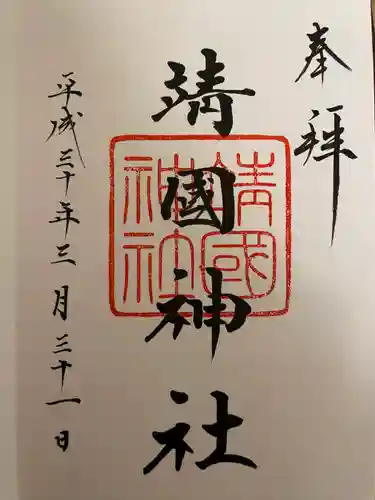 奉拝
靖國神社
靖國
神社
平成三十年三月三十一日